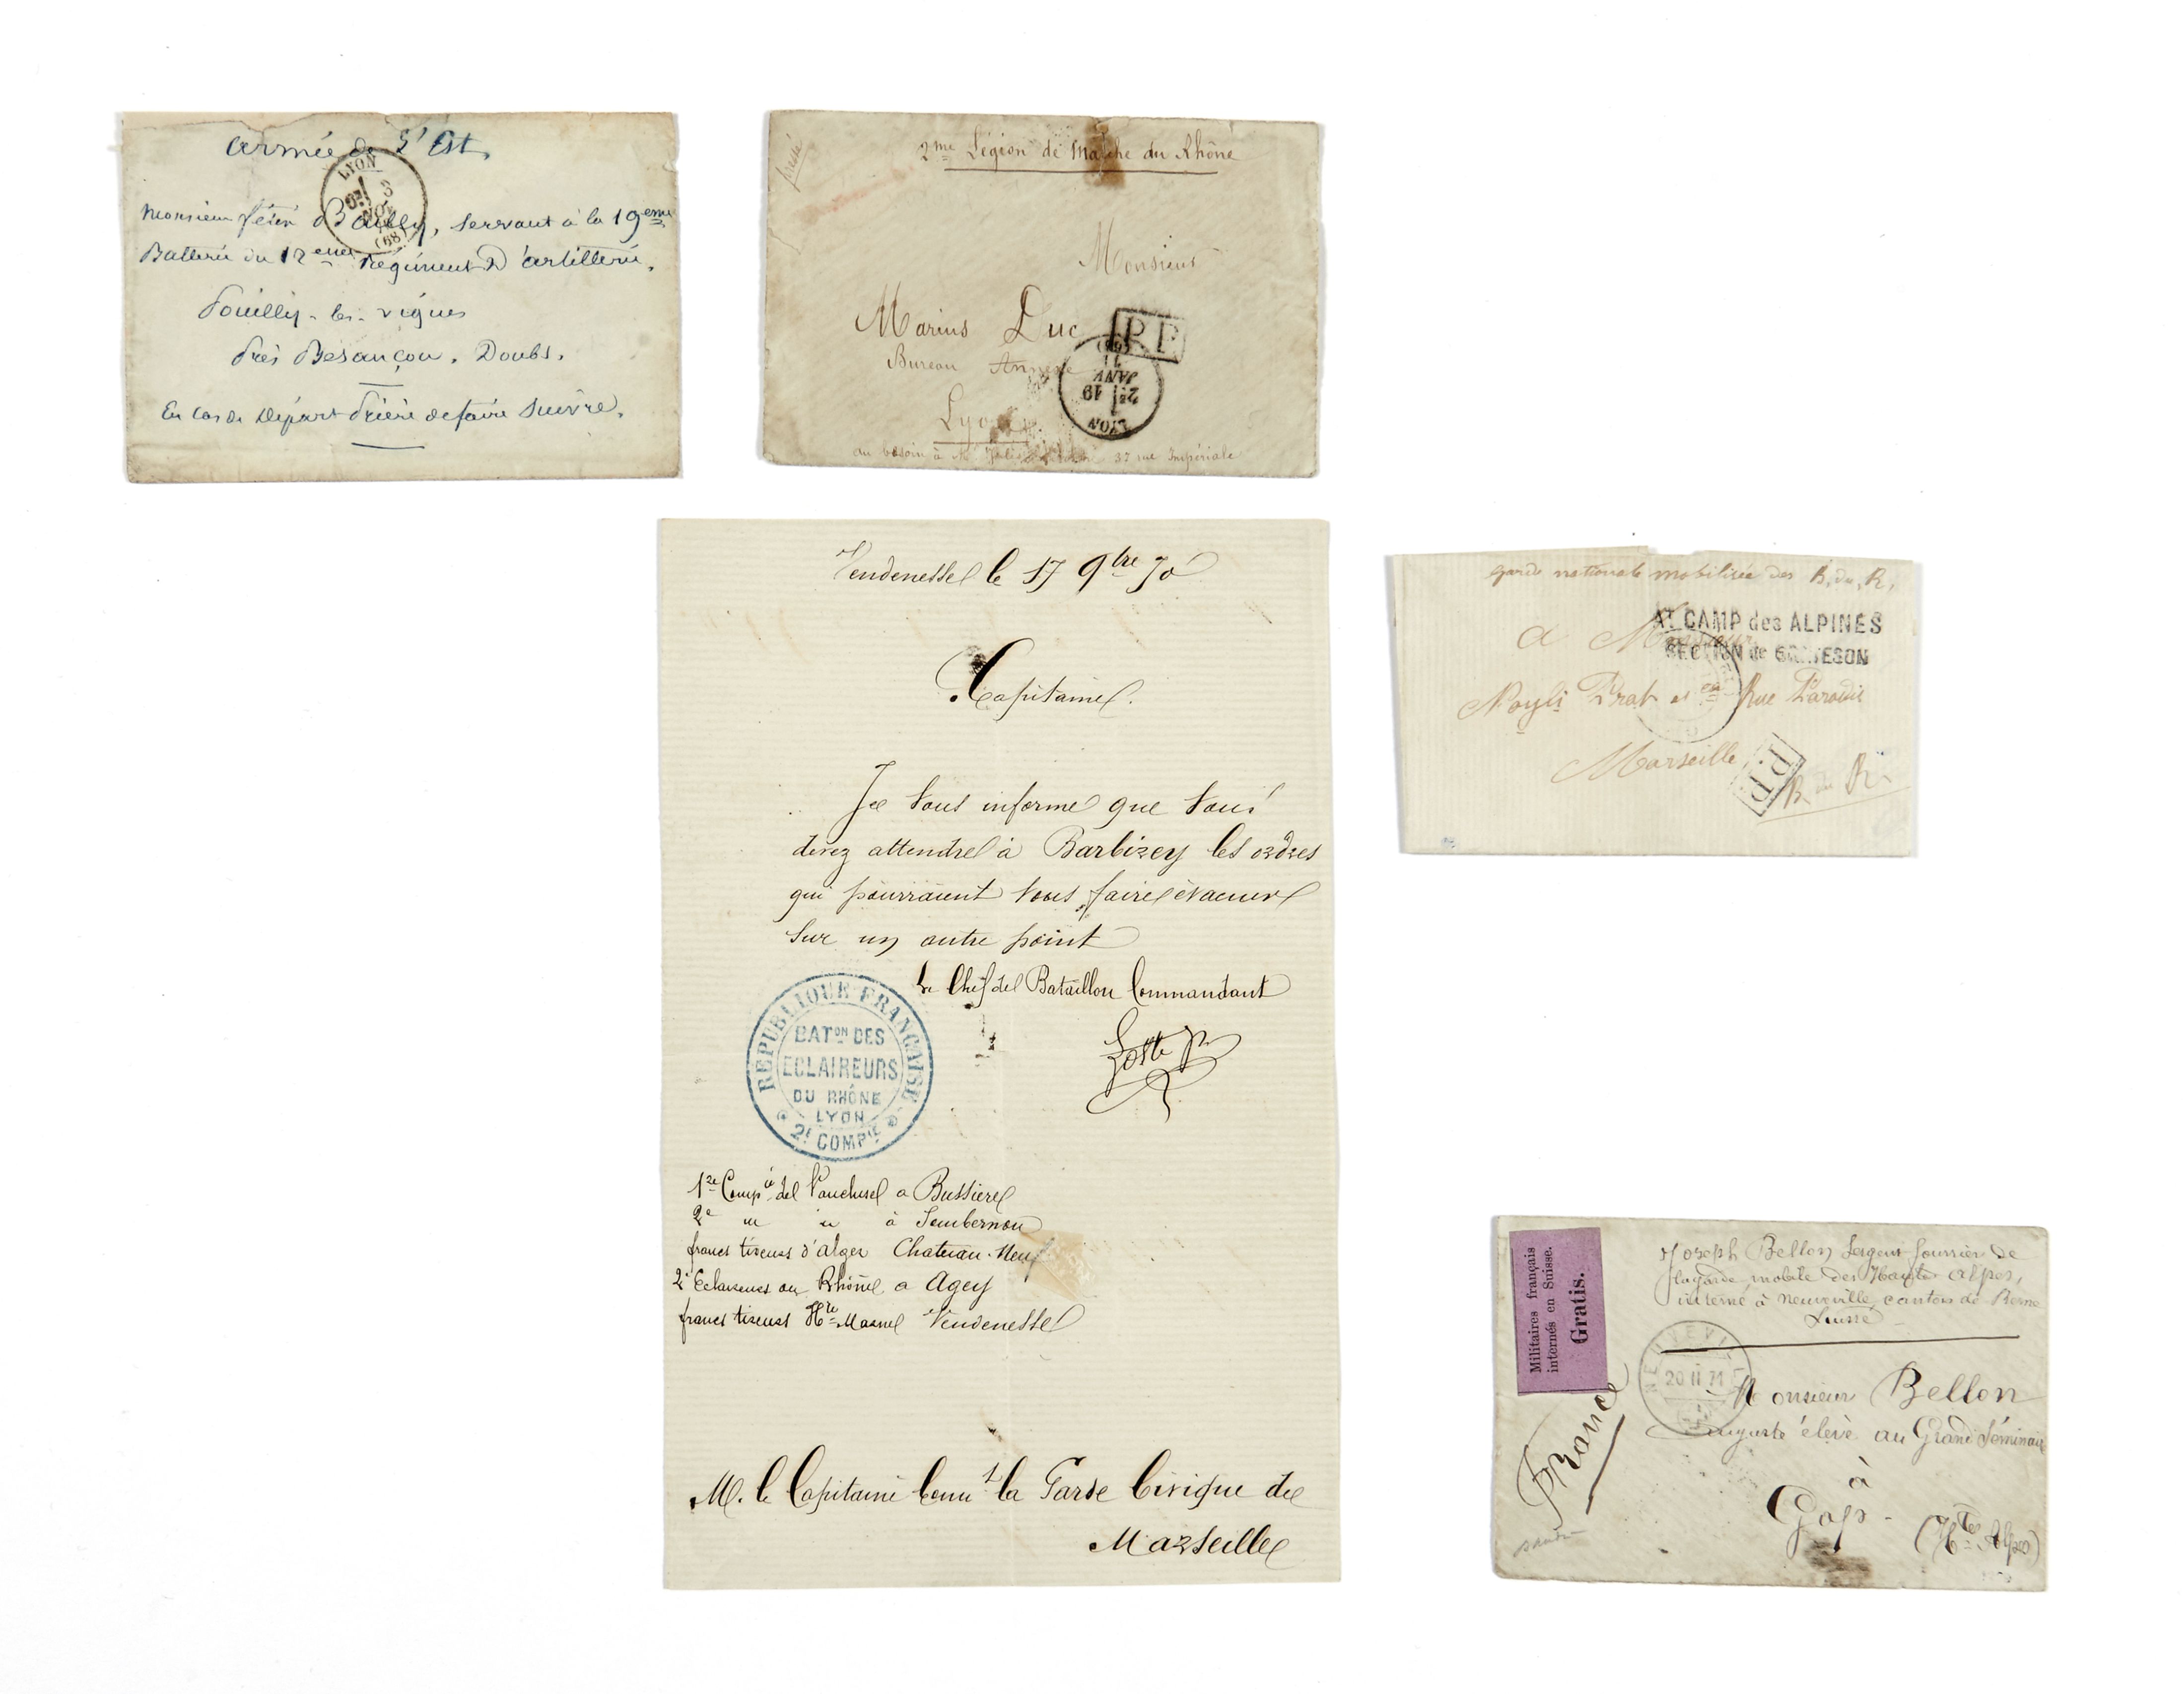 Armée de L'Est.
LYON
(68)
Monsieur Bailly, servant à la 19eme
Batterie du 12eme Régiment D'artillerie.
Pouilly-les-vignes
Près Besançon. Doubs.
En cas de Départ Prière de faire suivre.
2me Légion de Marche du Rhône
Monsieur
Marius Duc
P.P.
Bureau Annexe
JANV
LYON
Lyon
au besoin à Mr Jules 37 rue Impériale
Vendenesse le 17 9bre 70
Capitaine.
Je vous informe que vous
devez attendre à Barbizey les ordres
qui pourraient vous faire évacuer
sur un autre point
Le Chef de Bataillon Commandant
REPUBLIQUE FRANCAISE
BATON DES
ECLAIREURS
DU RHÔNE
LYON
2E COMPIE
1re Compie de Vaucluse a Bussiere
2e " " à Sombernon
francs tireurs d'alger Chateau-Neuf
2e Eclaireurs du Rhône a Agey
francs tireurs Hte Marne Vendenesse
M. le Capitaine Comt la Garde Civique de
Marseille
garde nationale mobilisée des B. du R.
AL CAMP des ALPINES
SECTION de GRAVESON
a Monsieur
Noyli Prat et Cie Rue Paradis
Marseille
P.P.
B du R
Militaires français
internés en Suisse.
Gratis.
Joseph Bellon Sergent fourrier de
la garde mobile des Hautes Alpes,
interné à Neuveville canton de Berne
Suisse
NEUVEVILLE
20 II 71
Monsieur Bellon
Auguste élève au Grand Séminaire
à
Gap - (Htes Alpes)
France